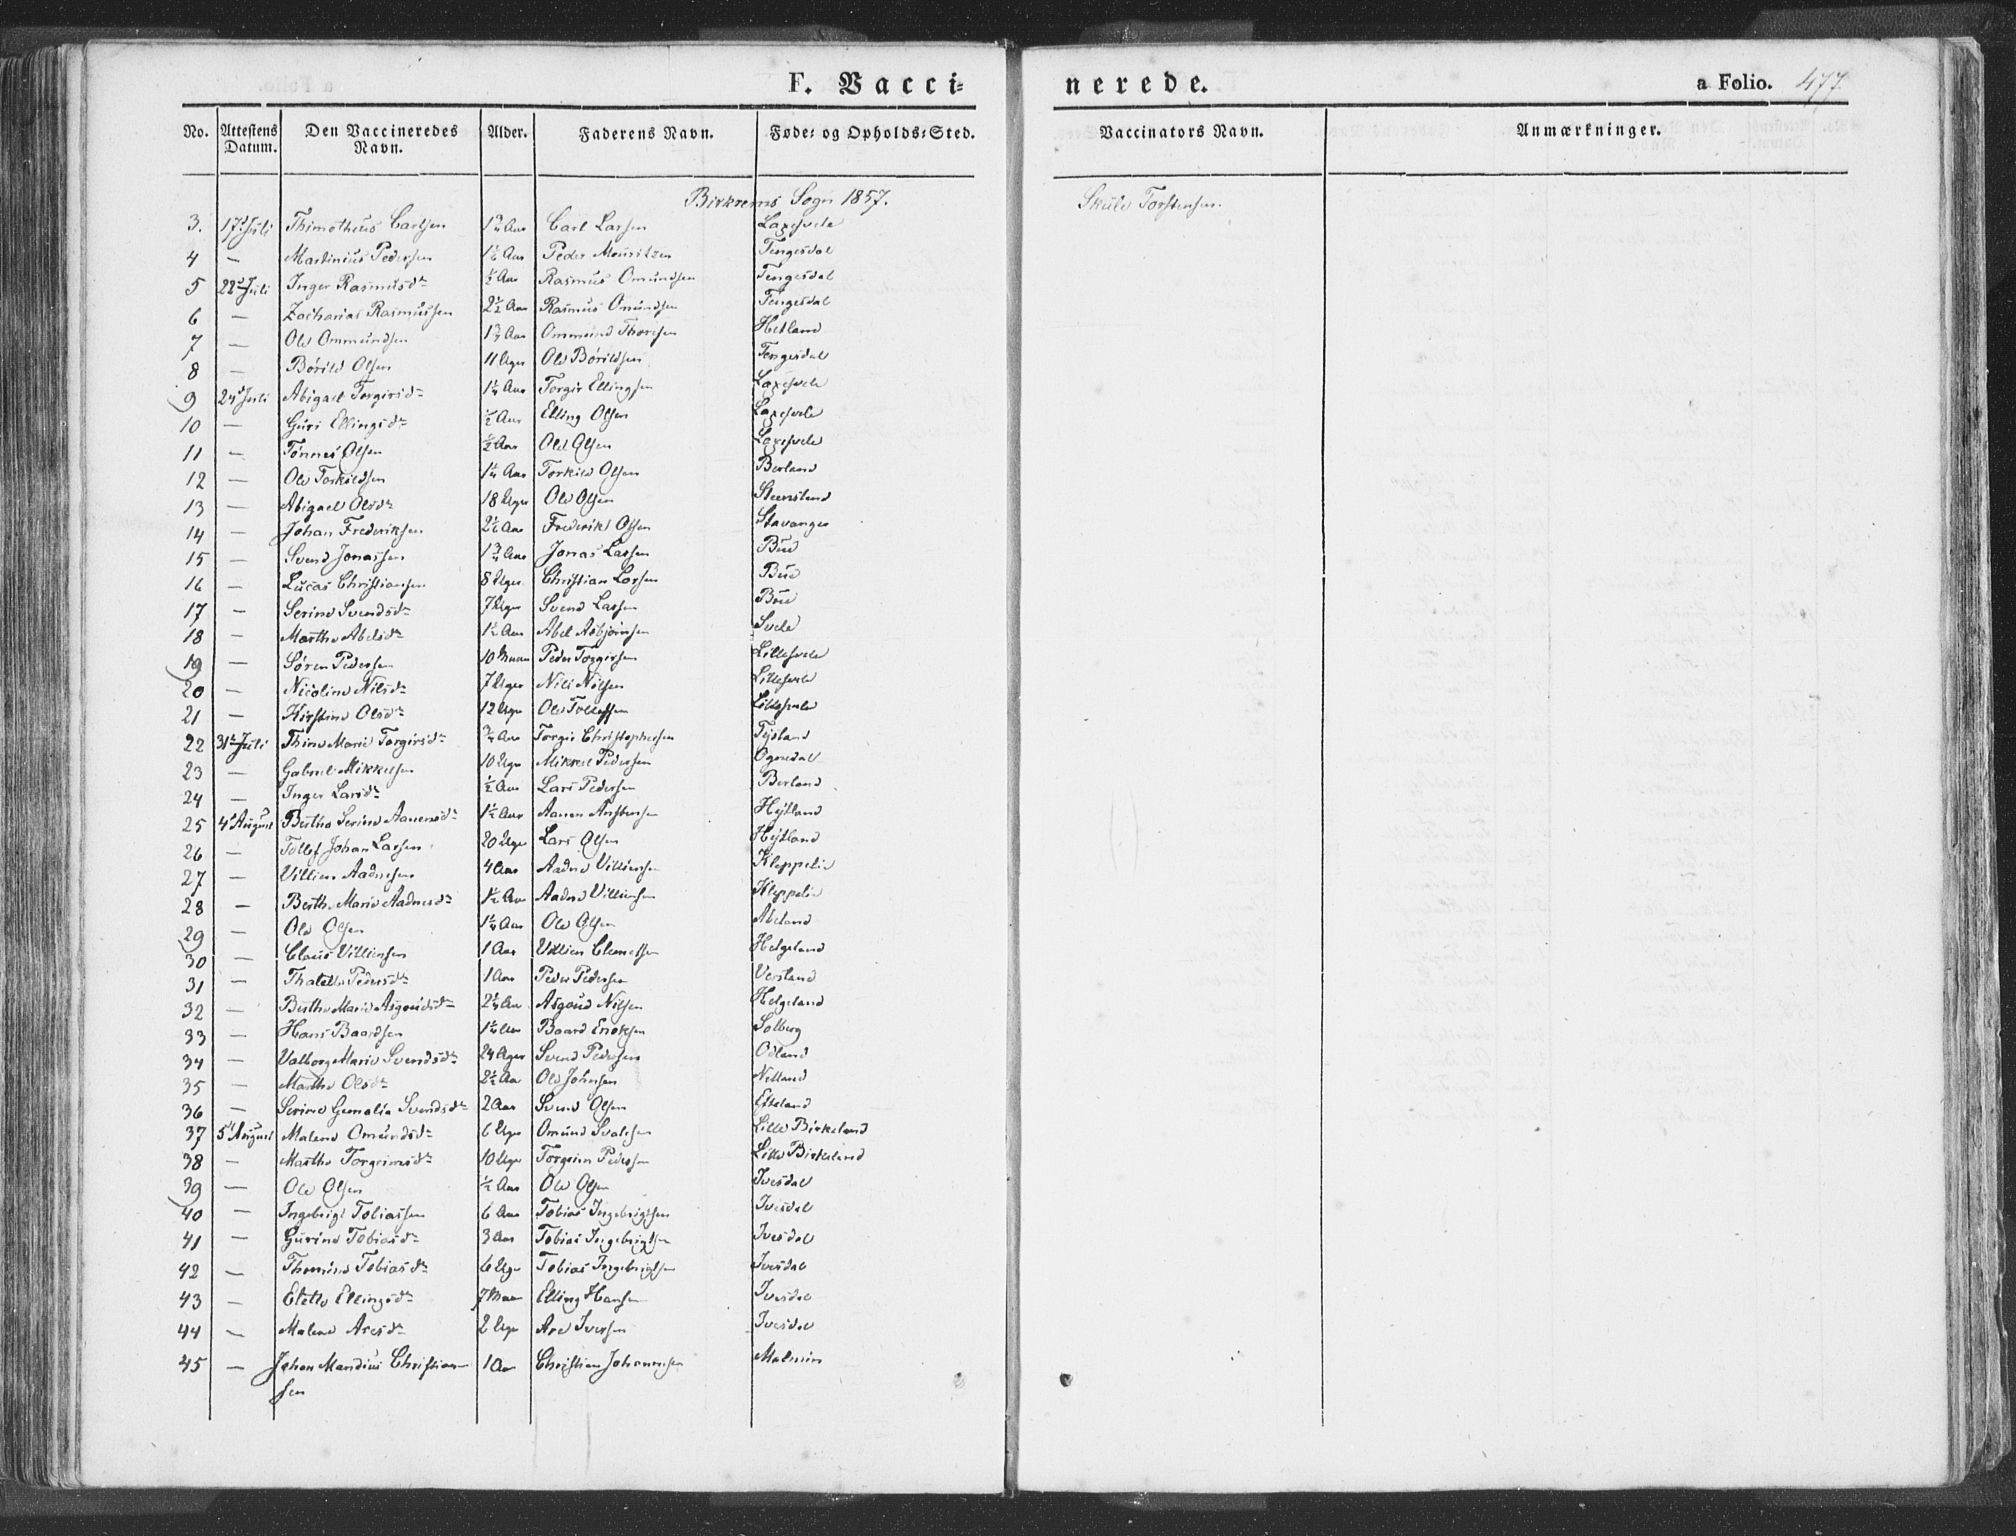 F. Vacci-
nerede.
a Folio. 477.
No. Attestens Datum. Den Vaccineredes Navn. Alder. Faderens Navn. Føde- og Opholds-Sted.
Vaccinators Navn. Anmærkninger.
Birkrems Sogn 1857. Skule Torstensen
3. 17d Juli Thimotheus Carlsen 1 3/4 Aar Carl Larsen Laxesvele
4 — Martinius Pedersen Aar Peder Mouritzen Tengesdal
5 22d Juli Inger Rasmusdr 1/2 Aar Rasmus Omundsen Tengesdal
6 — Zacharias Rasmussen 2 1/2 Aar Rasmus Omundsen Tengesdal
7 — Ole Ommundsen Aar Ommund Thorsen Hetland
8 — Børild Olsen 11 Uger Ole Børildsen Tengesdal
9 24d Juli Abigael Torgirsdr 1 1/4 Aar Torgir Ellingsen Laxesvele
10 — Guri Ellingsdr 1/2 Aar Elling Olsen Laxesvele
11 — Tønnes Olsen 1/2 Aar Ole Olsen Laxesvele
12 — Ole Torkildsen 1 1/4 Aar Torkild Olsen Berland
13 — Abigael Olsdr 18 Uger Ole Olsen Steensland
14 — Johan Frederiksen 2 1/2 Aar Frederik Olsen Stavanger
15 — Svend Jonassen 1 3/4 Aar Jonas Larsen Bue
16 — Lucas Christiansen 8 Uger Christian Larsen Bue
17 — Serine Svendsdr 7 Uger Svend Larsen Bue
18 — Marthe Abelsdr 1 1/2 Aar Abel Asbjørnsen Svele
19 — Søren Pedersen 10 Maan Peder Torgirsen Lillesvele
20 — Nicoline Nilsdr 7 Uger Nils Nilsen Lillesvele
21 — Kirstine Olsdr 12 Uger Ole Tollefsen Lillesvele
22 31d Juli Thine Marie Torgirsdr 3/4 Aar Torgir Christophersen Tjsland
23 — Gabriel Mikkelsen 10 Uger Mikkel Pedersen Ognedal
24 — Inger Larsdr 1/2 Aar Lars Pedersen Berland
25 4d August Berthe Serine Aanensdr 1 1/2 Aar Aanen Anstensen Hejtland
26 — Tollef Johan Larsen 20 Uger Lars Olsen Hejtland
27 — Villien Aadnesen 4 Aar Aadne Villiensen Kleppelie
28 — Berthe Marie Aadnesdr 1 1/2 Aar Aadne Villiensen Kleppelie
29 — Ole Olsen 1 1/4 Aar Ole Olsen Abeland
30 — Claus Villiensen 1 Aar Villien Clemetsen Helgeland
31 — Thalette Pedersdr 1 Aar Peder Pedersen Versland
32 — Berthe Marie Asgoudsdr 2 1/4 Aar Asgoud Nilsen Helgeland
33 — Hans Baardsen 1 1/4 Aar Baard Enoksen Solberg
34 — Valborg Marie Svendsdr 24 Uger Svend Pedersen Odland
35 — Marthe Olsdr 2 1/2 Aar Ole Johnsen Netland
36 — Serine Gemalia Svendsdr 2 Aar Svend Olsen Efteland
37 5d August Malene Omundsdr 6 Uger Omund Svalesen Lille Birkeland
38 — Marthe Torgeimsdr 10 Uger Torgeim Pedersen Lille Birkeland
39 — Ole Olsen 1/2 Aar Ole Olsen Ivesdal
40 — Ingebrigt Tobiassen 6 Aar Tobias Ingebrigtsen Ivesdal
41 — Gurine Tobiasdr 3 Aar Tobias Ingebrigtsen Ivesdal
42 — Thomine Tobiasdr 6 Uger Tobias Ingebrigtsen Ivesdal
43 — Elette Ellingsdr 7 Maan Elling Hansen Ivesdal
44 — Malene Aresdr 2 Uger Are Iversen Ivesdal
45 — Johan Mandius Christian- 1 Aar Christian Johannesen Malmein
sen